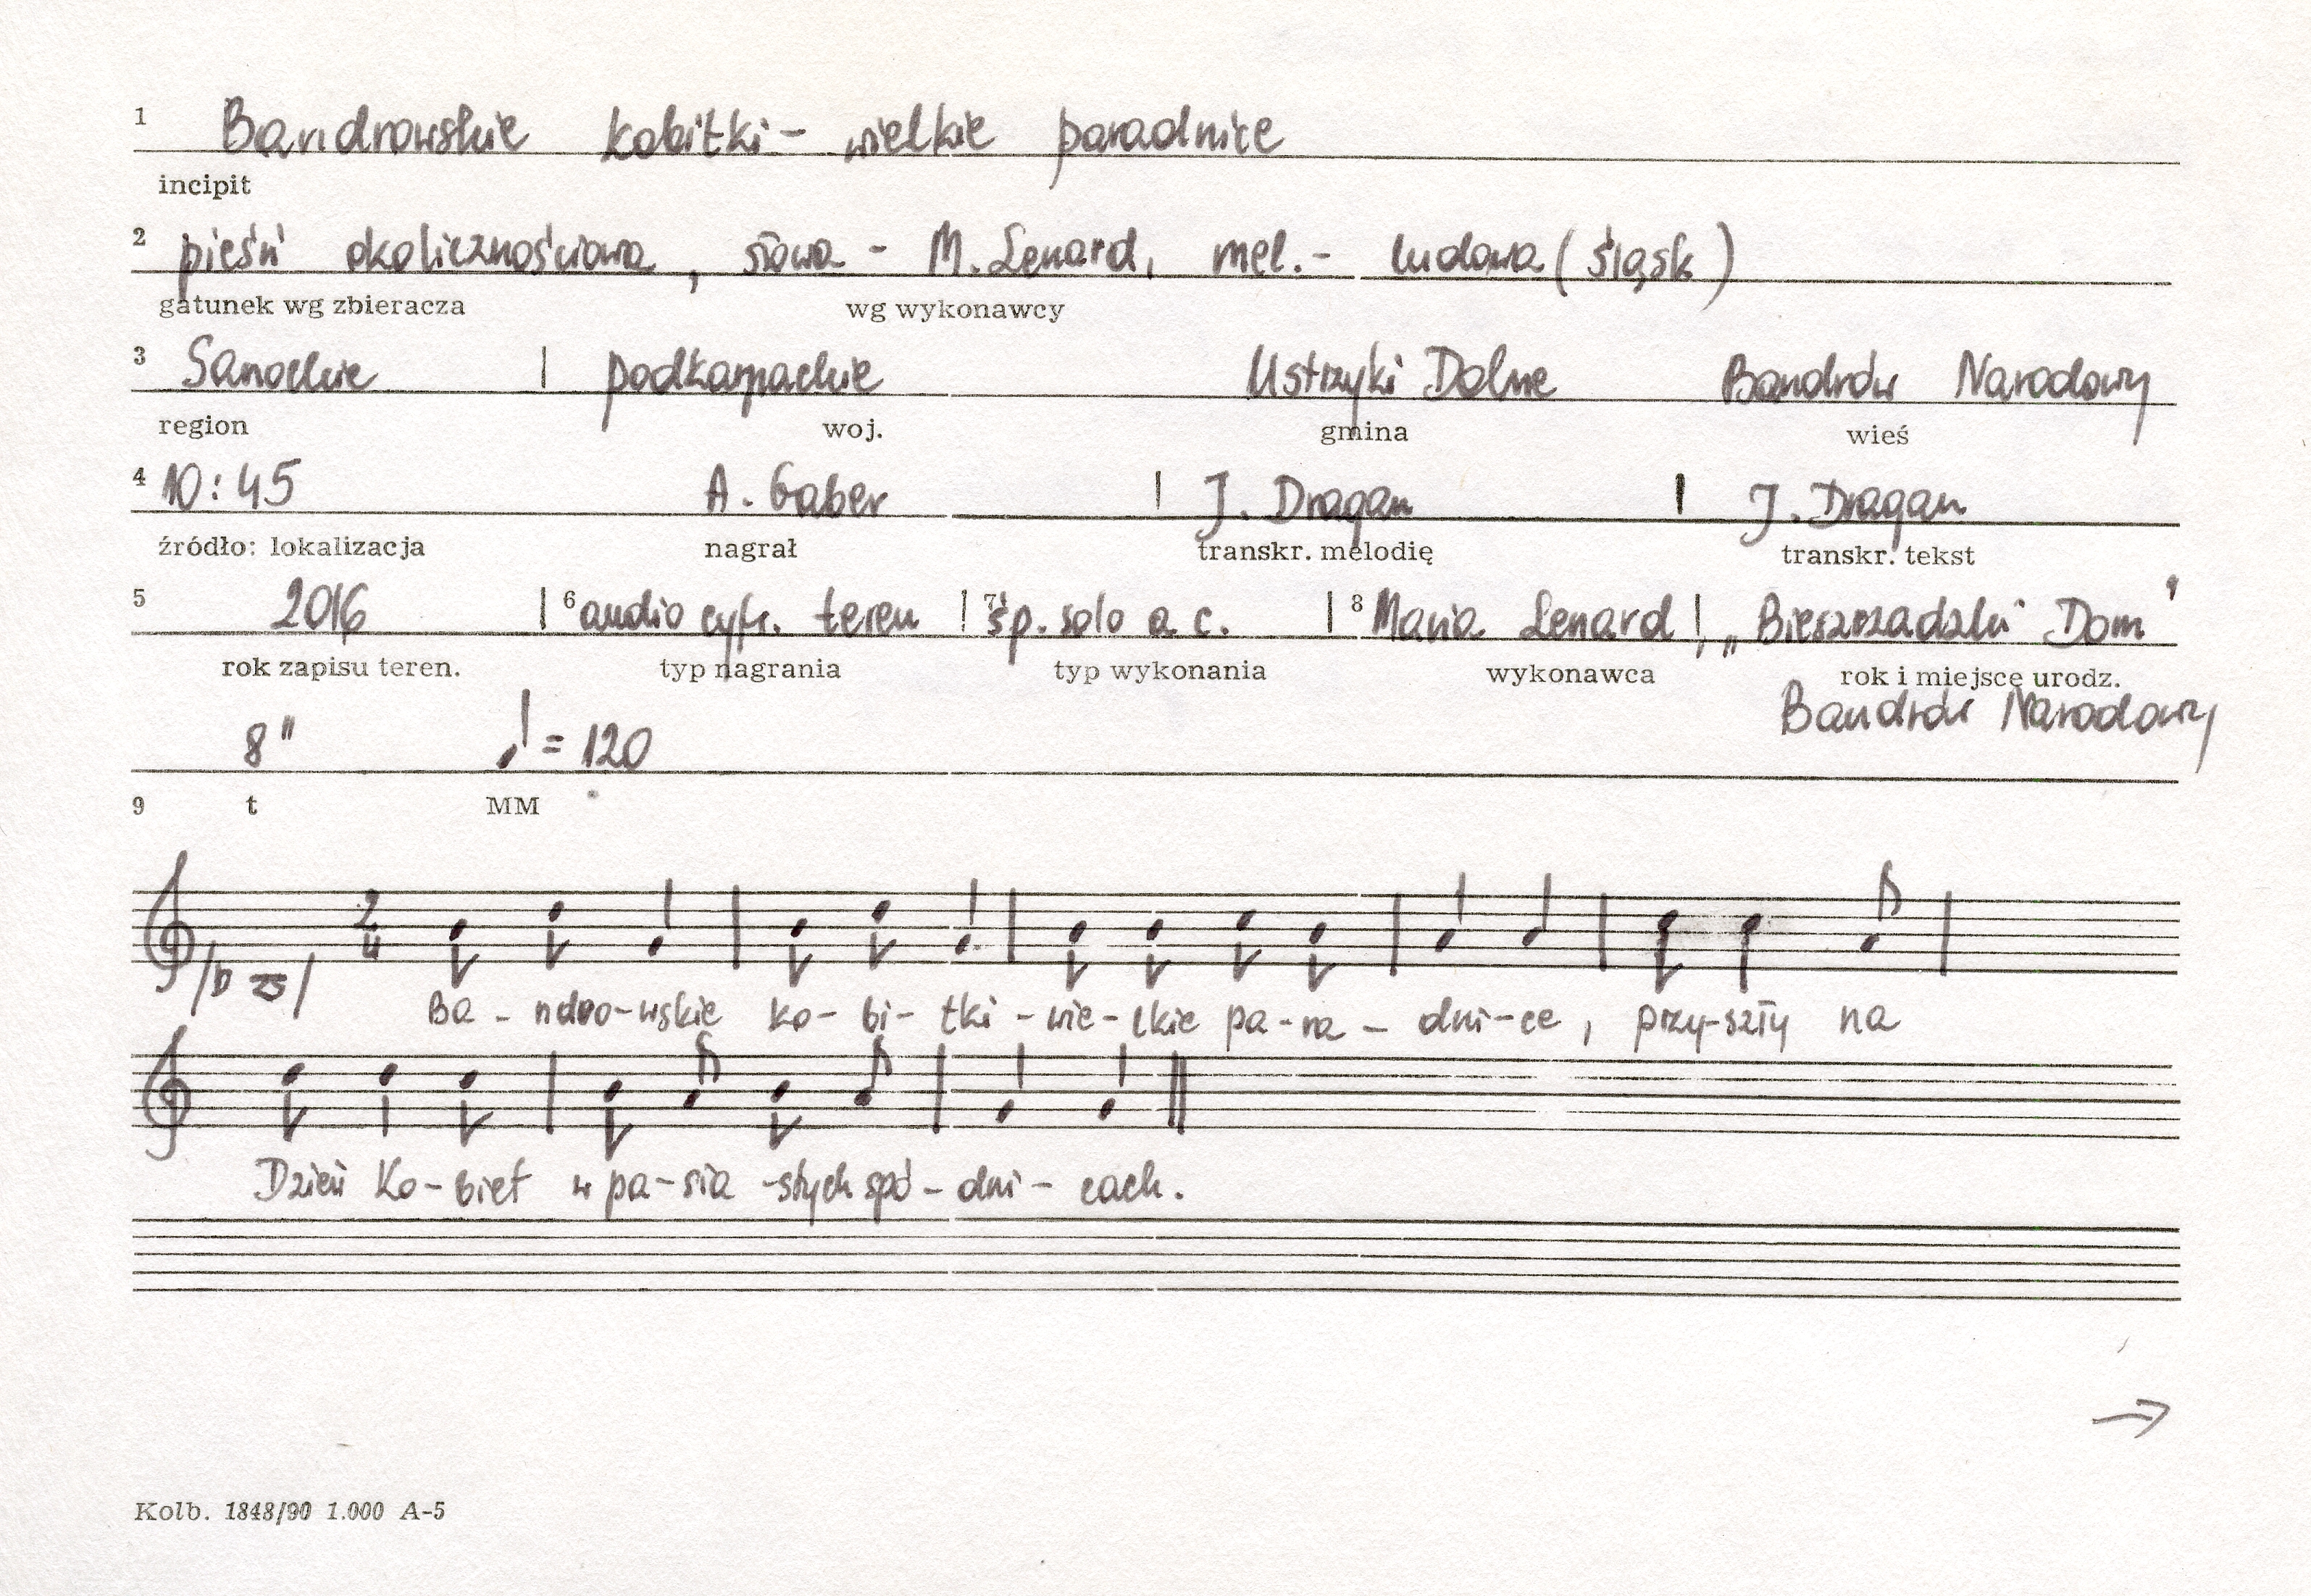 1 Bandrowskie kobitki - wielkie paradnice
incipit
2 pieśń okolicznościowa, słowa - M. Lenard, mel. - ludowa (Śląsk)
gatunek wg zbieracza wg wykonawcy
3 Sanockie | podkarpackie Ustrzyki Dolne Bandrów Narodowy
region woj. gmina wieś
4 10:45 A. Gaber | J. Dragan | J. Dragan
źródło: lokalizacja nagrał transkr. melodię transkr. tekst
5 2016 | 6 audio cyfr. teren | 7 śp. solo a c. | 8 Maria Lenard |, „Bieszczadzki Dom"
rok zapisu teren. typ nagrania typ wykonania wykonawca rok i miejsce urodz.
Bandrów Narodowy
8" ♩ = 120
9 t MM
2
4
Ba - ndro-wskie ko - bi - tki - wie - lkie pa - ra - dni - ce, przy-szły na
Dzień Ko - biet w pa - sia - stych spó - dni - cach.
→
Kolb. 1848/90 1.000 A-5